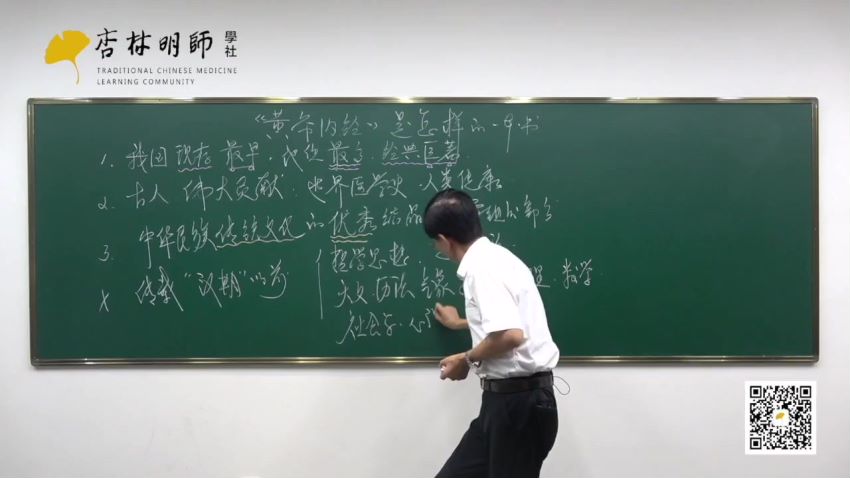 杏林明師 學社
TRADITIONAL CHINESE MEDICINE
LEARNING COMMUNITY
“黄帝内经”是怎样的一部书
1. 我国现存最早,地位最高,经典巨著
2. 古人伟大贡献:世界医学史,人类健康
3. 中华民族传统文化的优秀结晶 部分
4 传载“汉朝”以前
哲学思想
天文.历法.气象 数学
社会学.心